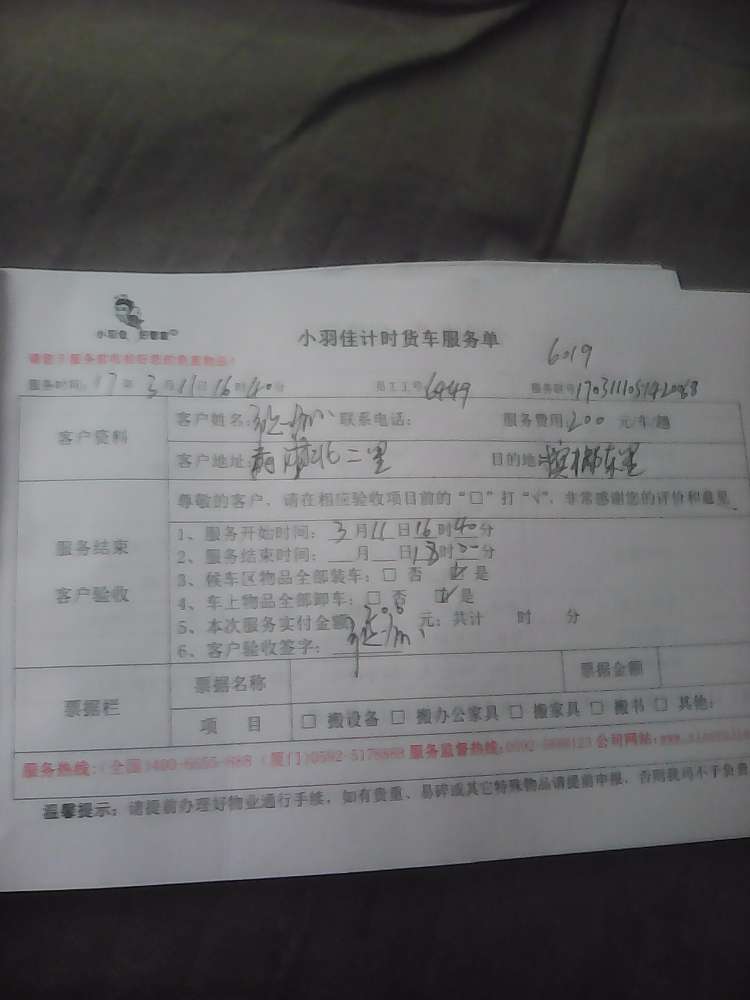 小羽佳计时货车服务单
6019
服务时间：17年3月11日16时40分 员工工号6449 服务联号
客户资料
客户姓名： 联系电话： 服务费用：200 元/车/趟
客户地址： 北二里 目的地： 槟榔东里
尊敬的客户，请在相应验收项目前的“□”打“√”，非常感谢您的评价和意见
服务结束
客户验收
1、服务开始时间：3月11日16时40分
2、服务结束时间：__月__日18时 分
3、候车区物品全部装车：□ 否 ☑ 是
4、车上物品全部卸车：□ 否 ☑ 是
5、本次服务实付金额200元；共计 时 分
6、客户验收签字：
票据栏
票据名称 票据金额
项 目 □ 搬设备 □ 搬办公家具 □ 搬家具 □ 搬书 □ 其他：
服务热线：(全国)400-6655-888 (厦门)0592-5178888 服务监督热线： 公司网站：
温馨提示：请提前办理好物业通行手续，如有贵重、易碎或其它特殊物品请提前申报，否则我司不予负责